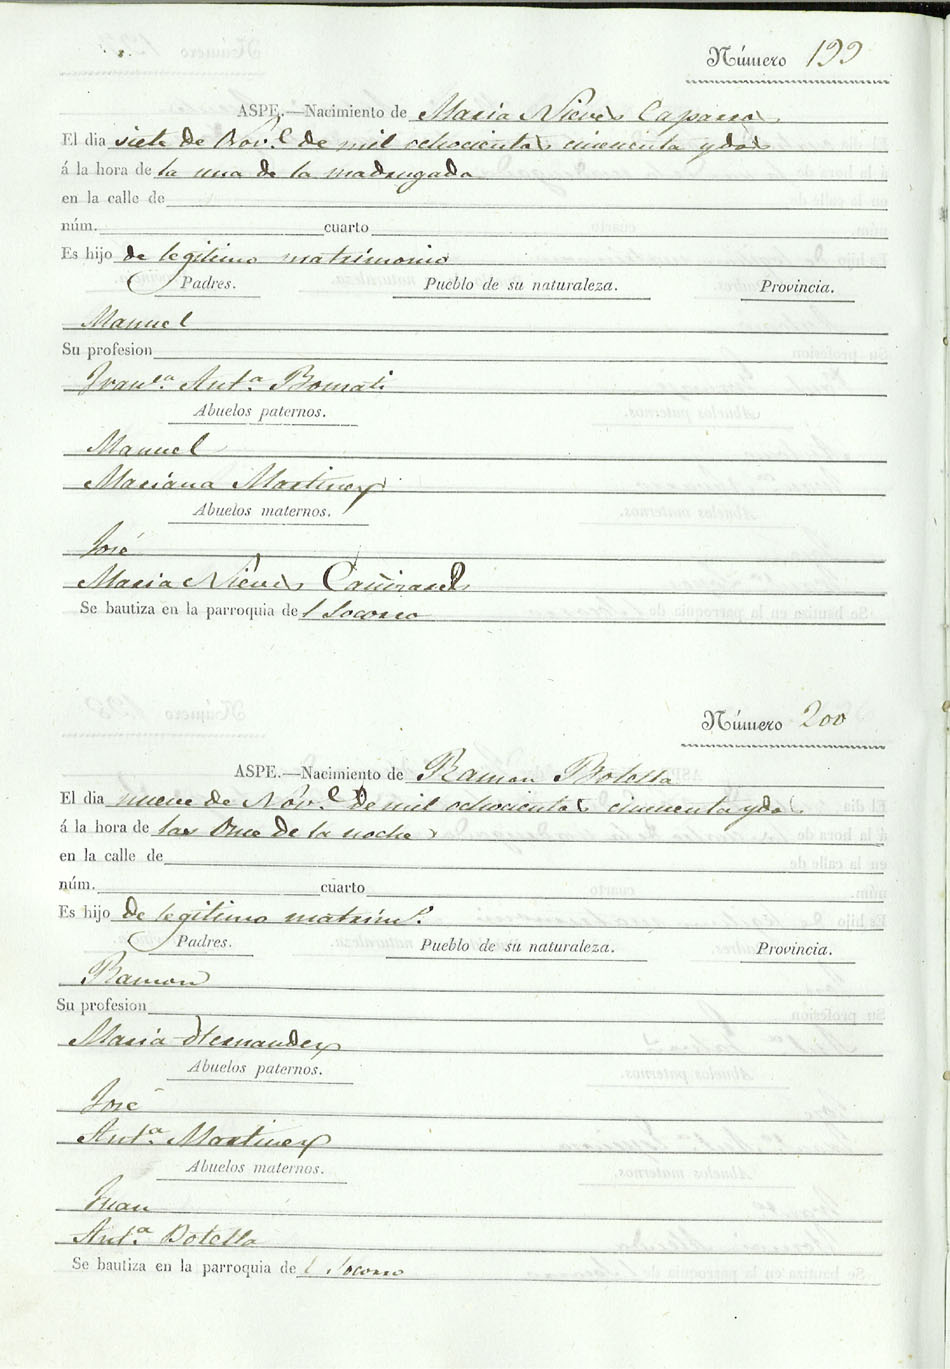 Número 199
ASPE.—Nacimiento de Maria Nieves Caparros
El dia siete de Nov.e de mil ochocientos cincuenta y dos
á la hora de la una de la madrugada
en la calle de
núm. cuarto
Es hijo de legitimo matrimonio
Padres. Pueblo de su naturaleza. Provincia.
Manuel
Su profesion
Fran.ca Ant.a Bomati
Abuelos paternos.
Manuel
Mariana Martinez
Abuelos maternos.
José
Maria Nieves Cañizares
Se bautiza en la parroquia de l Socorro
Número 200
ASPE.—Nacimiento de Ramon Botella
El dia nueve de Nov.e De mil ochocientos cincuenta y dos
á la hora de las Once de la noche
en la calle de
núm. cuarto
Es hijo de legitimo matrim.o
Padres. Pueblo de su naturaleza. Provincia.
Ramon
Su profesion
Maria Hernandez
Abuelos paternos.
José
Ant.a Martinez
Abuelos maternos.
Juan
Ant.a Botella
Se bautiza en la parroquia de l Socorro